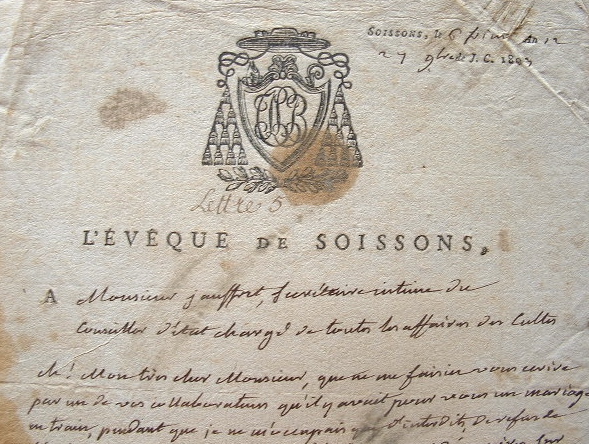 SOISSONS, le 6 frim An 12
27 9bre de J. C. 1803
JPLB
Lettre 5
L'ÉVÊQUE DE SOISSONS,
A Monsieur jauffret, Secrétaire intime du
Conseiller d'état chargé de toutes les affaires des Cultes
eh! Mon très cher Monsieur, que ne me faisiez vous ecrire
par un de vos collaborateurs qu'il y avait pour vous un mariage
en train, pendant que je ne m'occupais que d'interdits, de refus de